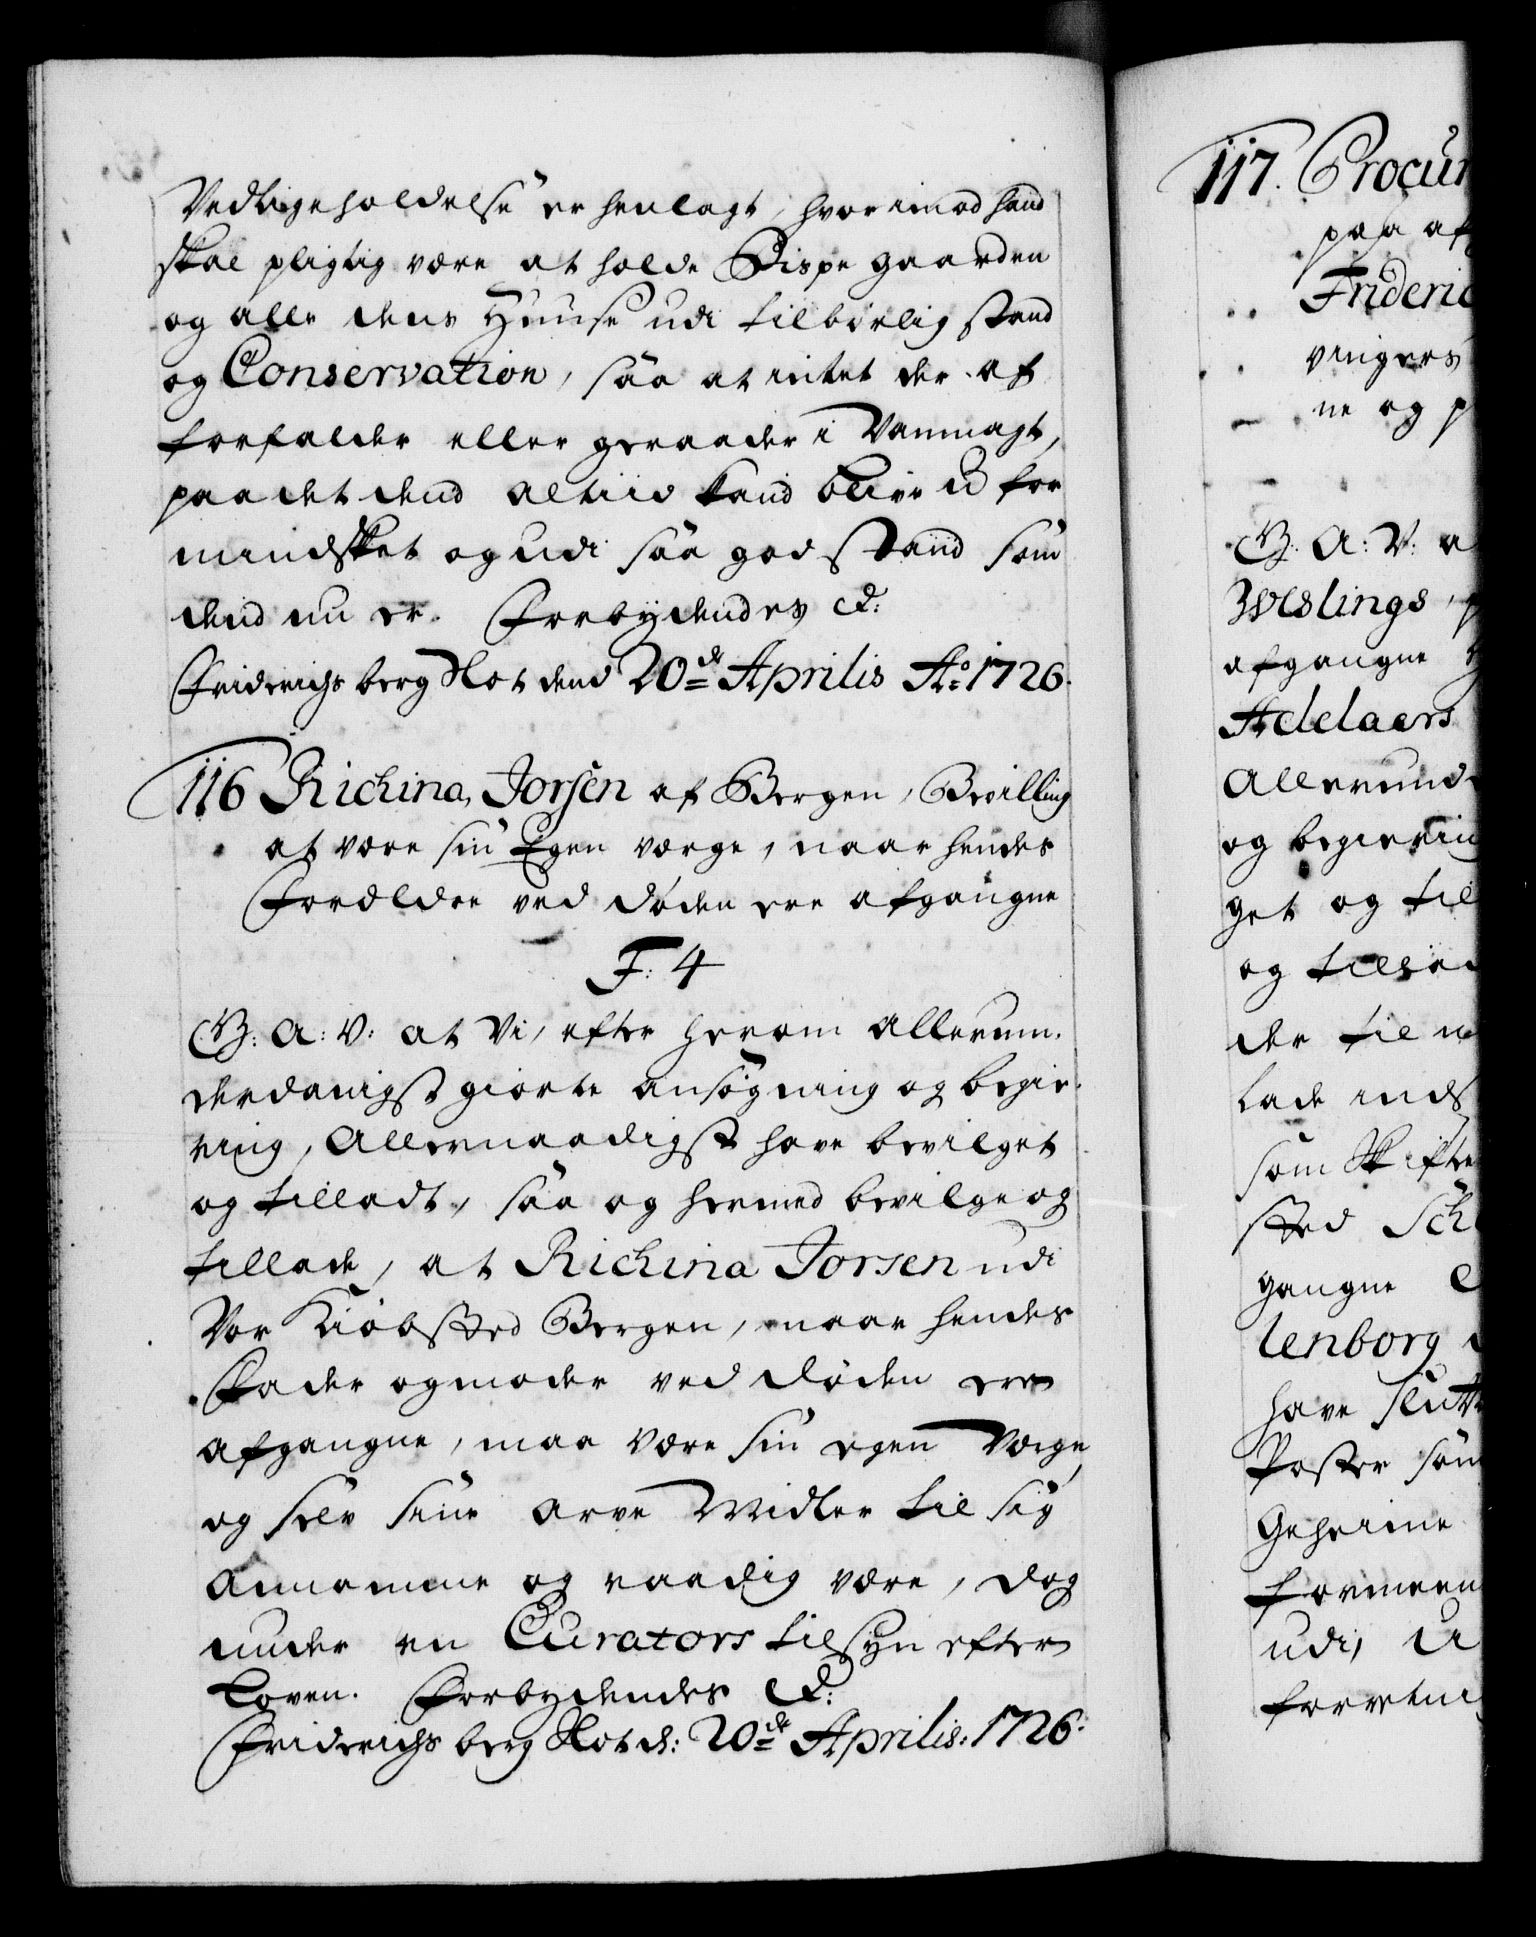 Vedligeholdelse er henlagt, hvorimod hand
skal pligtig være at holde Bispegaarden
og alle dens Huuse udi tilbørlig stand
og Conservation, saa at intet der af
forfalder eller geraader i Vanmagt,
paa det dend altiid kand blive ufor
mindsket og udi saa god stand som
dend nu er. Forbydendes &:
Friderichsberg Slot dend 20de Aprilis Ao: 1726.
116 Richina Jorsen af Bergen, Bevilling
at være sin Egen værge, naar hendes
Forældre ved døden ere afgangne
F: 4
G. A: V: at Vi, efter herom allerun-
derdanigst giorte ansøgning og begie-
ring, Allernaadigst have bevilget
og tilladt, saa og hermed bevilge og
tillade, at Richina Jorsen udi
Vor Kiøbsted Bergen, naar hendes
Fader og moder ved døden ere
afgangne, maa være sin egen Værge,
og selv sine Arve Midler til sig
Annamme og raadig være, dog
under en Curators tilsyn efter
Loven. Forbydendes &:
Friderichsberg Slot d: 20de Aprilis: 1726.
117. Procur
paa af
Frideric
vingers
ne og p
G. A: V: a
Weslings, p
afgangne
Adelaers
Allerund
og begiering
get og til
og tilsa
der til
lade inds
som Skifte
sted Sch
gangne
lenborg
have slutt
Poster som
Geheime
formeen
udi, U
forretni